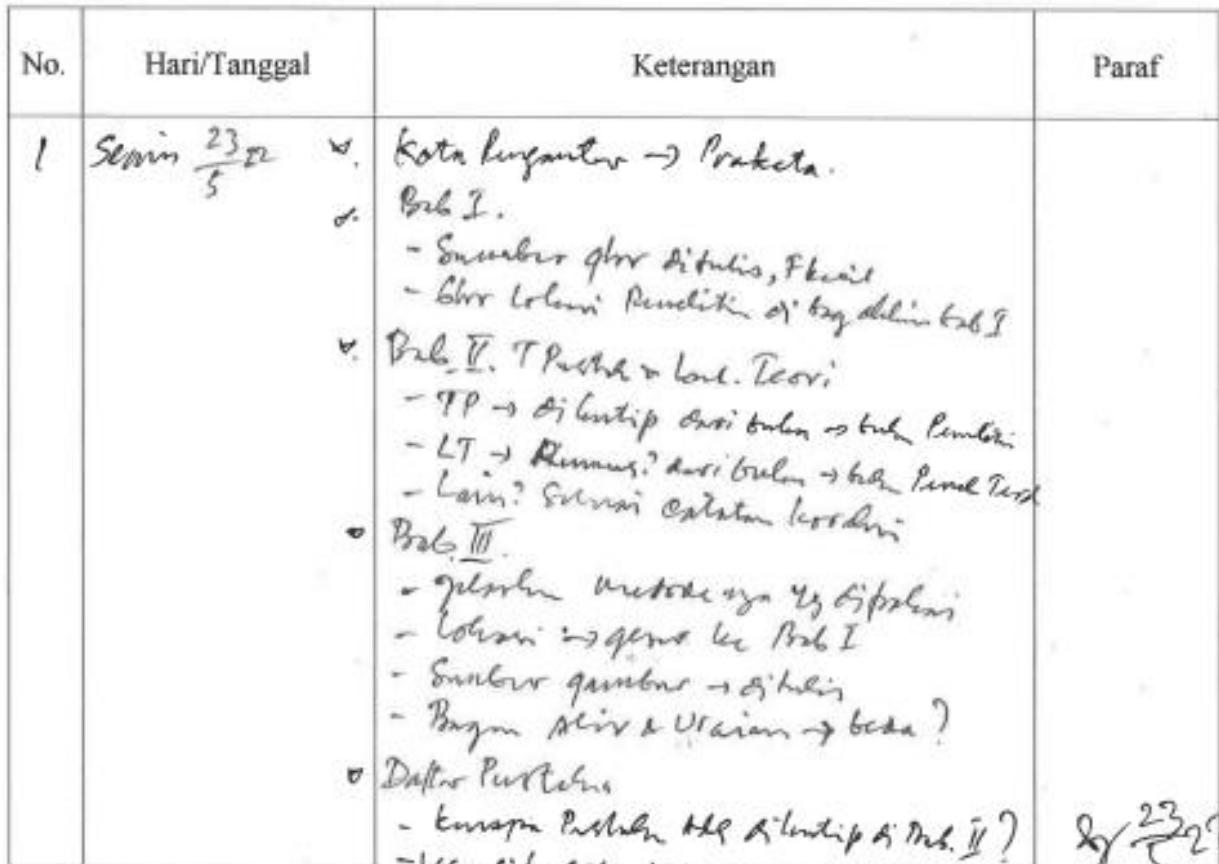 No. Hari/Tanggal Keterangan Paraf
1 Senin 23/5 22 Kata Pengantar → Prakata.
Bab I.
- Sumber gbr ditulis,
- Gbr lokasi Penelitin di bag dalam bab I
Bab II. T Pustaka & Land. Teori
- TP → dikutip dari bukan → buku Penelitin
- LT → Rumus² dari bukan → buku
- Lain² Sesuai catatan koreksi
Bab III.
- jelaskan metode apa yg dipakai
- Lokasi → geser ke Bab I
- Sumber gambar → ditulis
- Bagan Alir & Uraian → beda?
Daftar Pustaka
- kenapa Pustaka tdk dikutip di Bab. II? 23/5 22